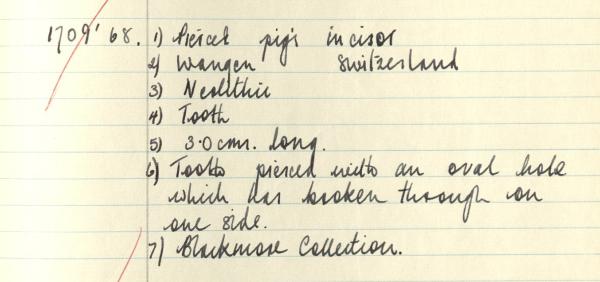 1709'68. 1) Pierced pig's incisor
2) Wangen Switzerland
3) Neolithic
4) Tooth
5) 3.0 cms. long.
6) Tooth pierced with an oval hole
which has broken through on
one side.
7) Blackmore Collection.